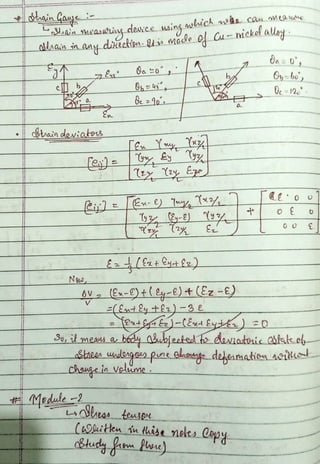 * Strain Gauge :-
↳ Strain measuring device using which we can measure
strain in any direction. It is made of Cu-nickel alloy.
εy c b a εx' εx
θa = 0°, θb = 45°, θc = 90°.
c b a
θa = 0°, θb = 60°, θc = 120°
• Strain deviators
[eij] = [εx γxy/2 γxz/2
γyx/2 εy γyz/2
γzx/2 γzy/2 εz]
[eij] = [(εx-ε) γxy/2 γxz/2
γyx/2 (εy-ε) γyz/2
γzx/2 γzy/2 εz] + [ε 0 0
0 ε 0
0 0 ε]
ε = 1/3 (εx + εy + εz)
Now,
ΔV/V = (εx-ε) + (εy-ε) + (εz-ε)
= (εx + εy + εz) - 3ε
= (εx + εy + εz) - (εx + εy + εz) = 0
So, it means a body subjected to deviatoric state of
stress undergoes pure deformation without
change in volume.
# Module-2
↳ Stress tensor
(Written in this notes copy
study from there)